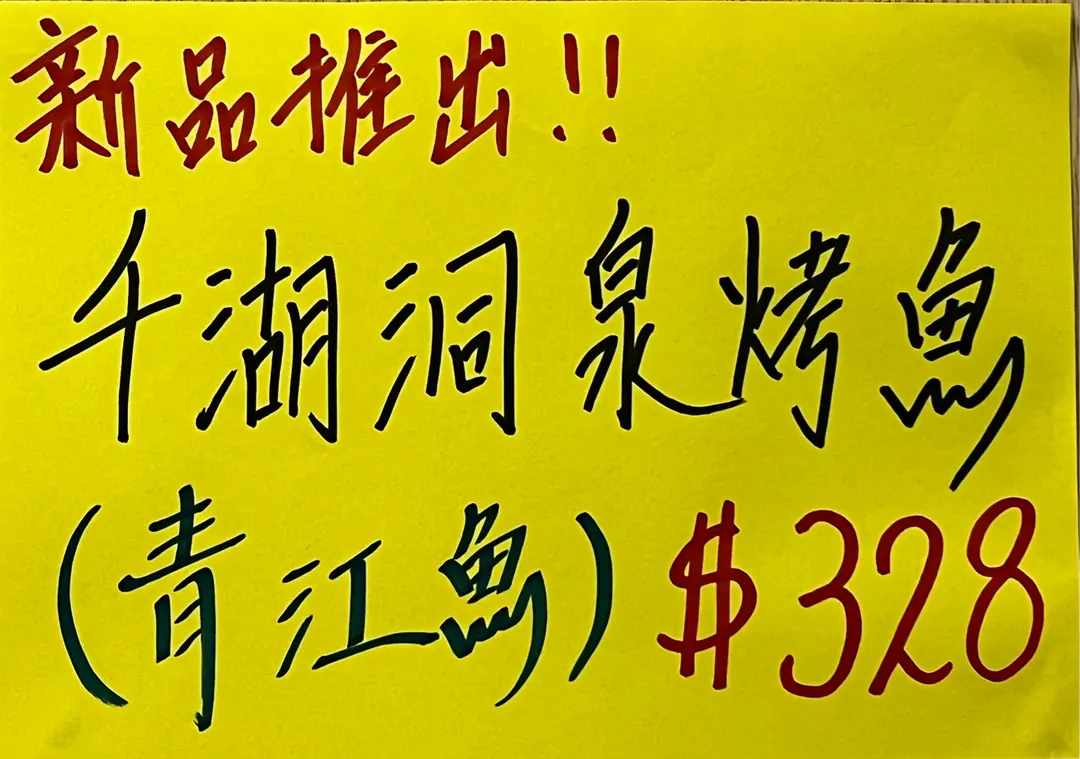 新品推出!!
千湖洞泉烤魚
(青江魚) $328